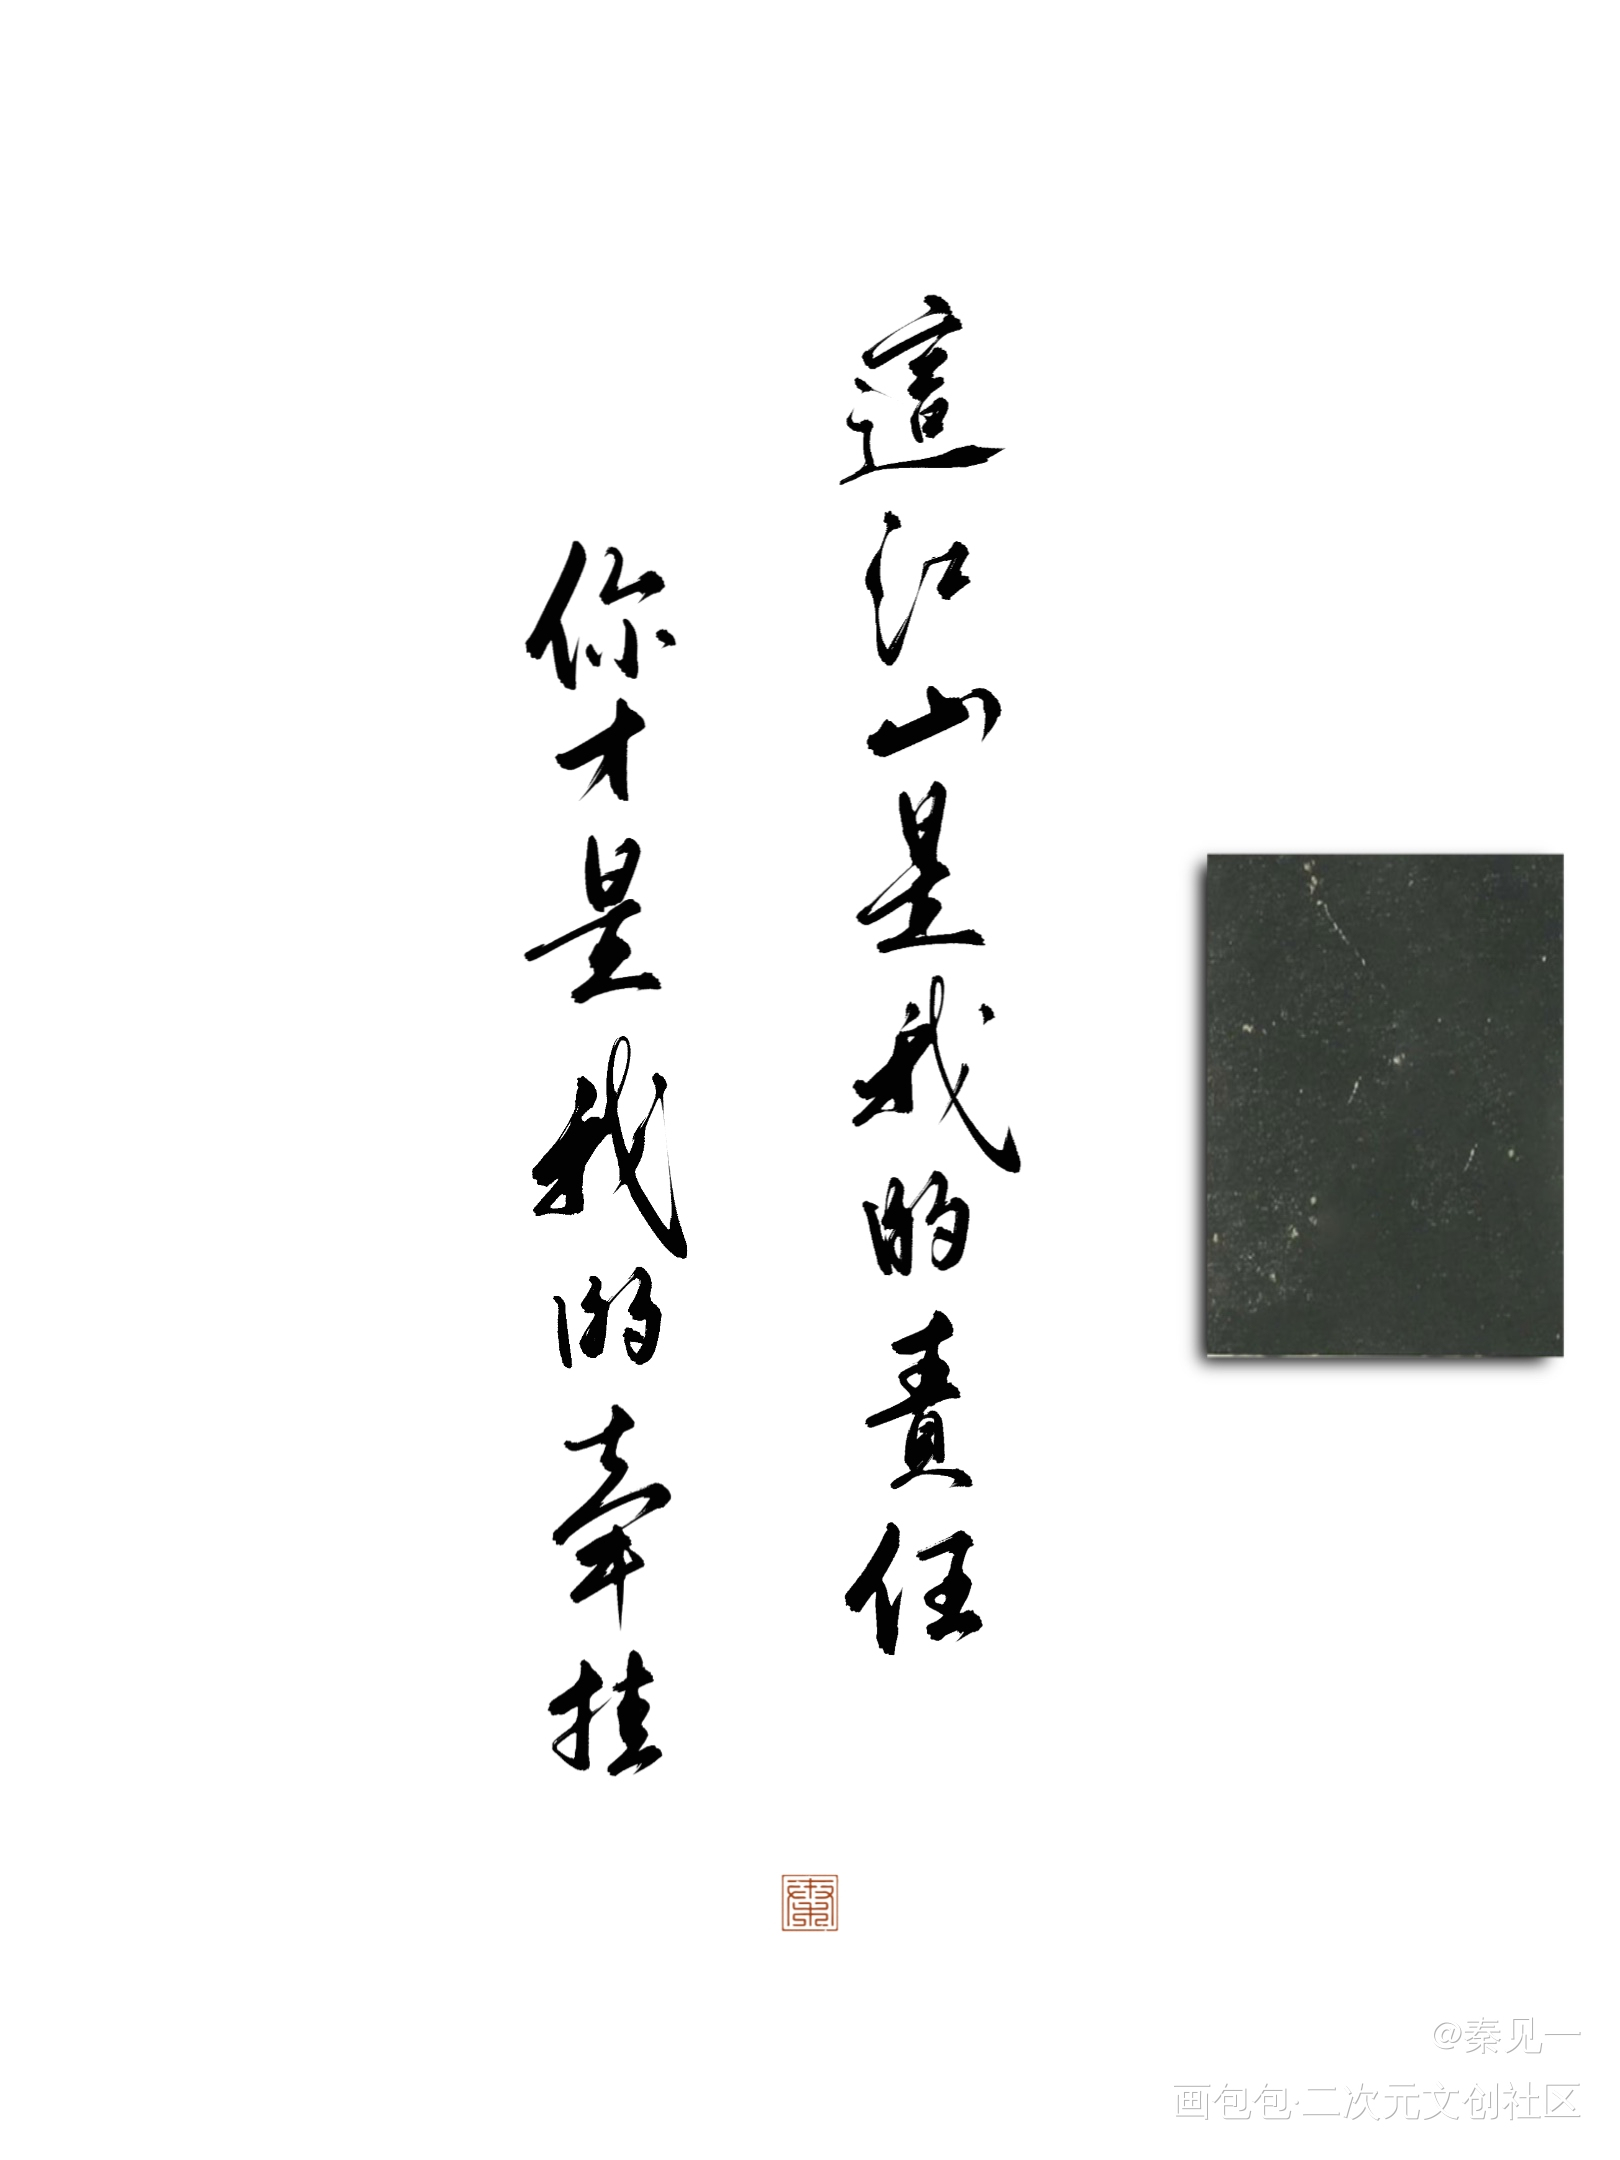 這江山是我的責任
你才是我的牽挂
@秦见一
画包包·二次元文创社区